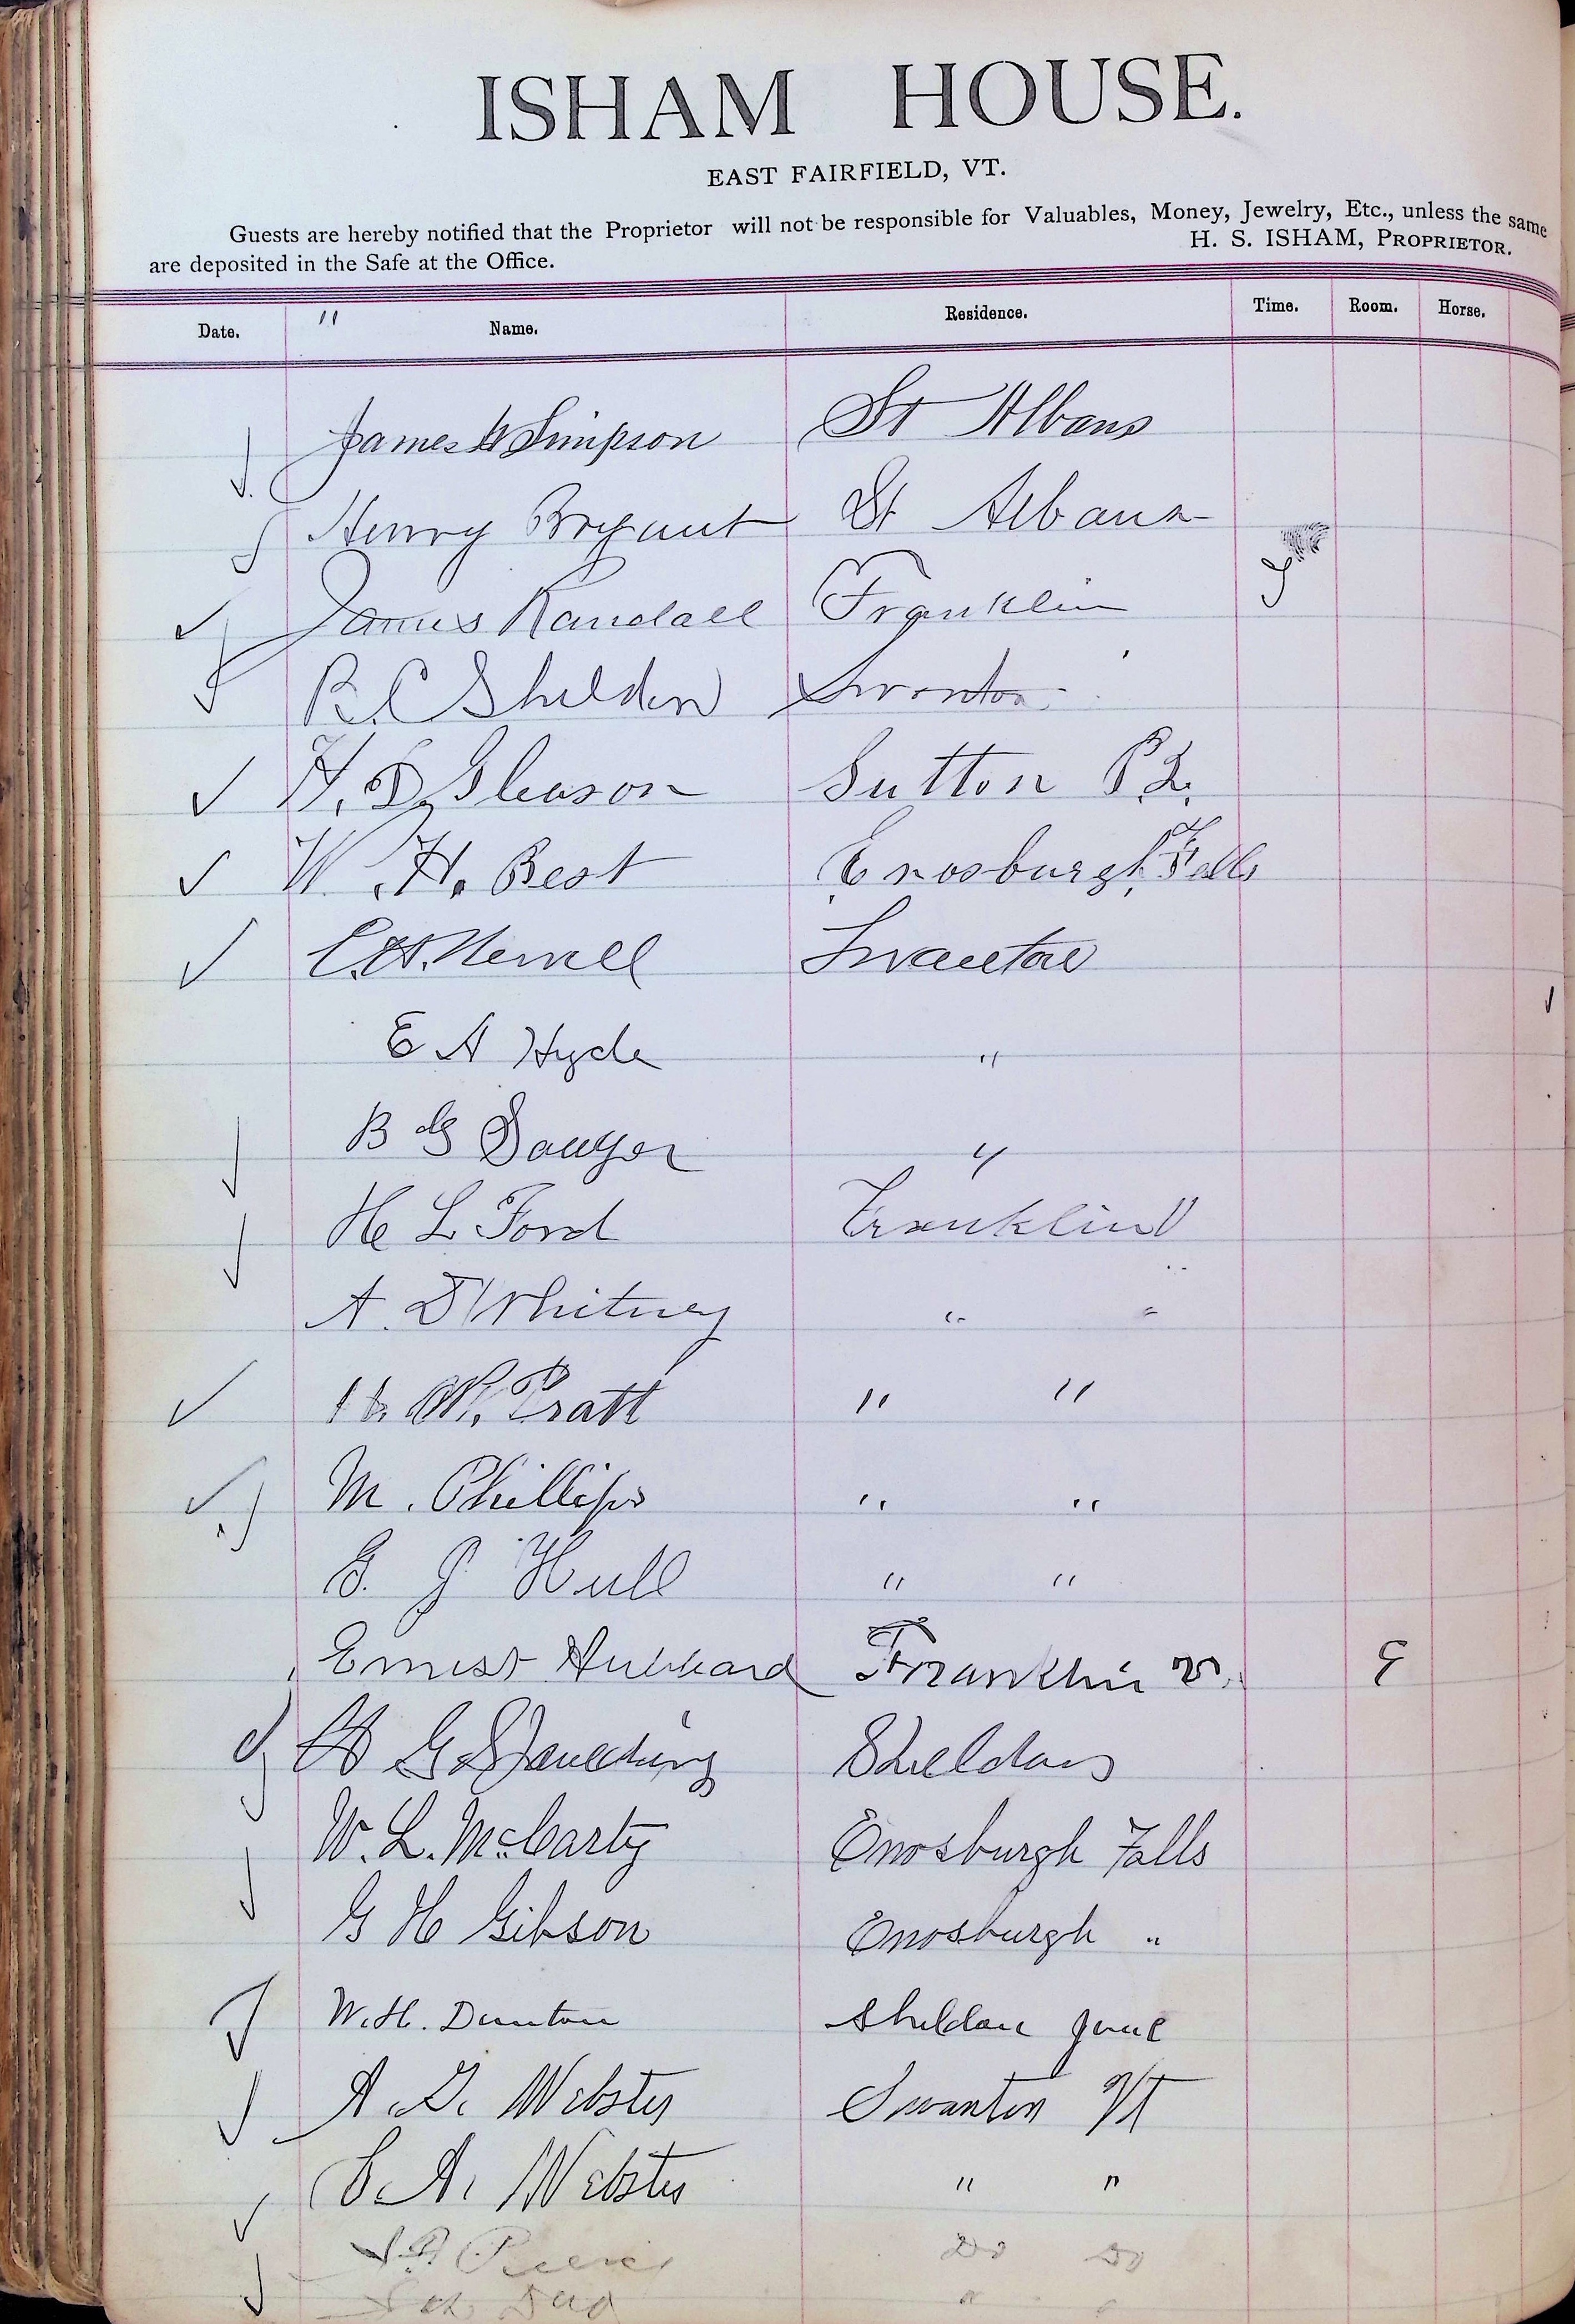 ISHAM HOUSE.
EAST FAIRFIELD, VT.
Guests are hereby notified that the Proprietor will not be responsible for Valuables, Money, Jewelry, Etc., unless the same
are deposited in the Safe at the Office. H. S. ISHAM, PROPRIETOR.
Date. " Name. Residence. Time. Room. Horse.
James W Simpson St Albans
Henry Bryant St Albans
James Randall Franklin
R. C Sheldon Swanton
H. D. Gleason Sutton P.Q.
W. H. Best Enosburgh Falls
C. H. Newell Swanton
E A Hyde "
B G Sawyer "
H L Ford Franklin
A. D Whitney " "
Pratt " "
M. Phillips " "
G. J Hull " "
Ernest Hubbard Franklin
H G Spaulding Sheldon
W. L. McCarty Enosburgh Falls
G H Gibson Enosburgh "
W. H. Dunton Sheldon Junc
A. G. Webster Swanton Vt
C. A. Webster " "
Do Do